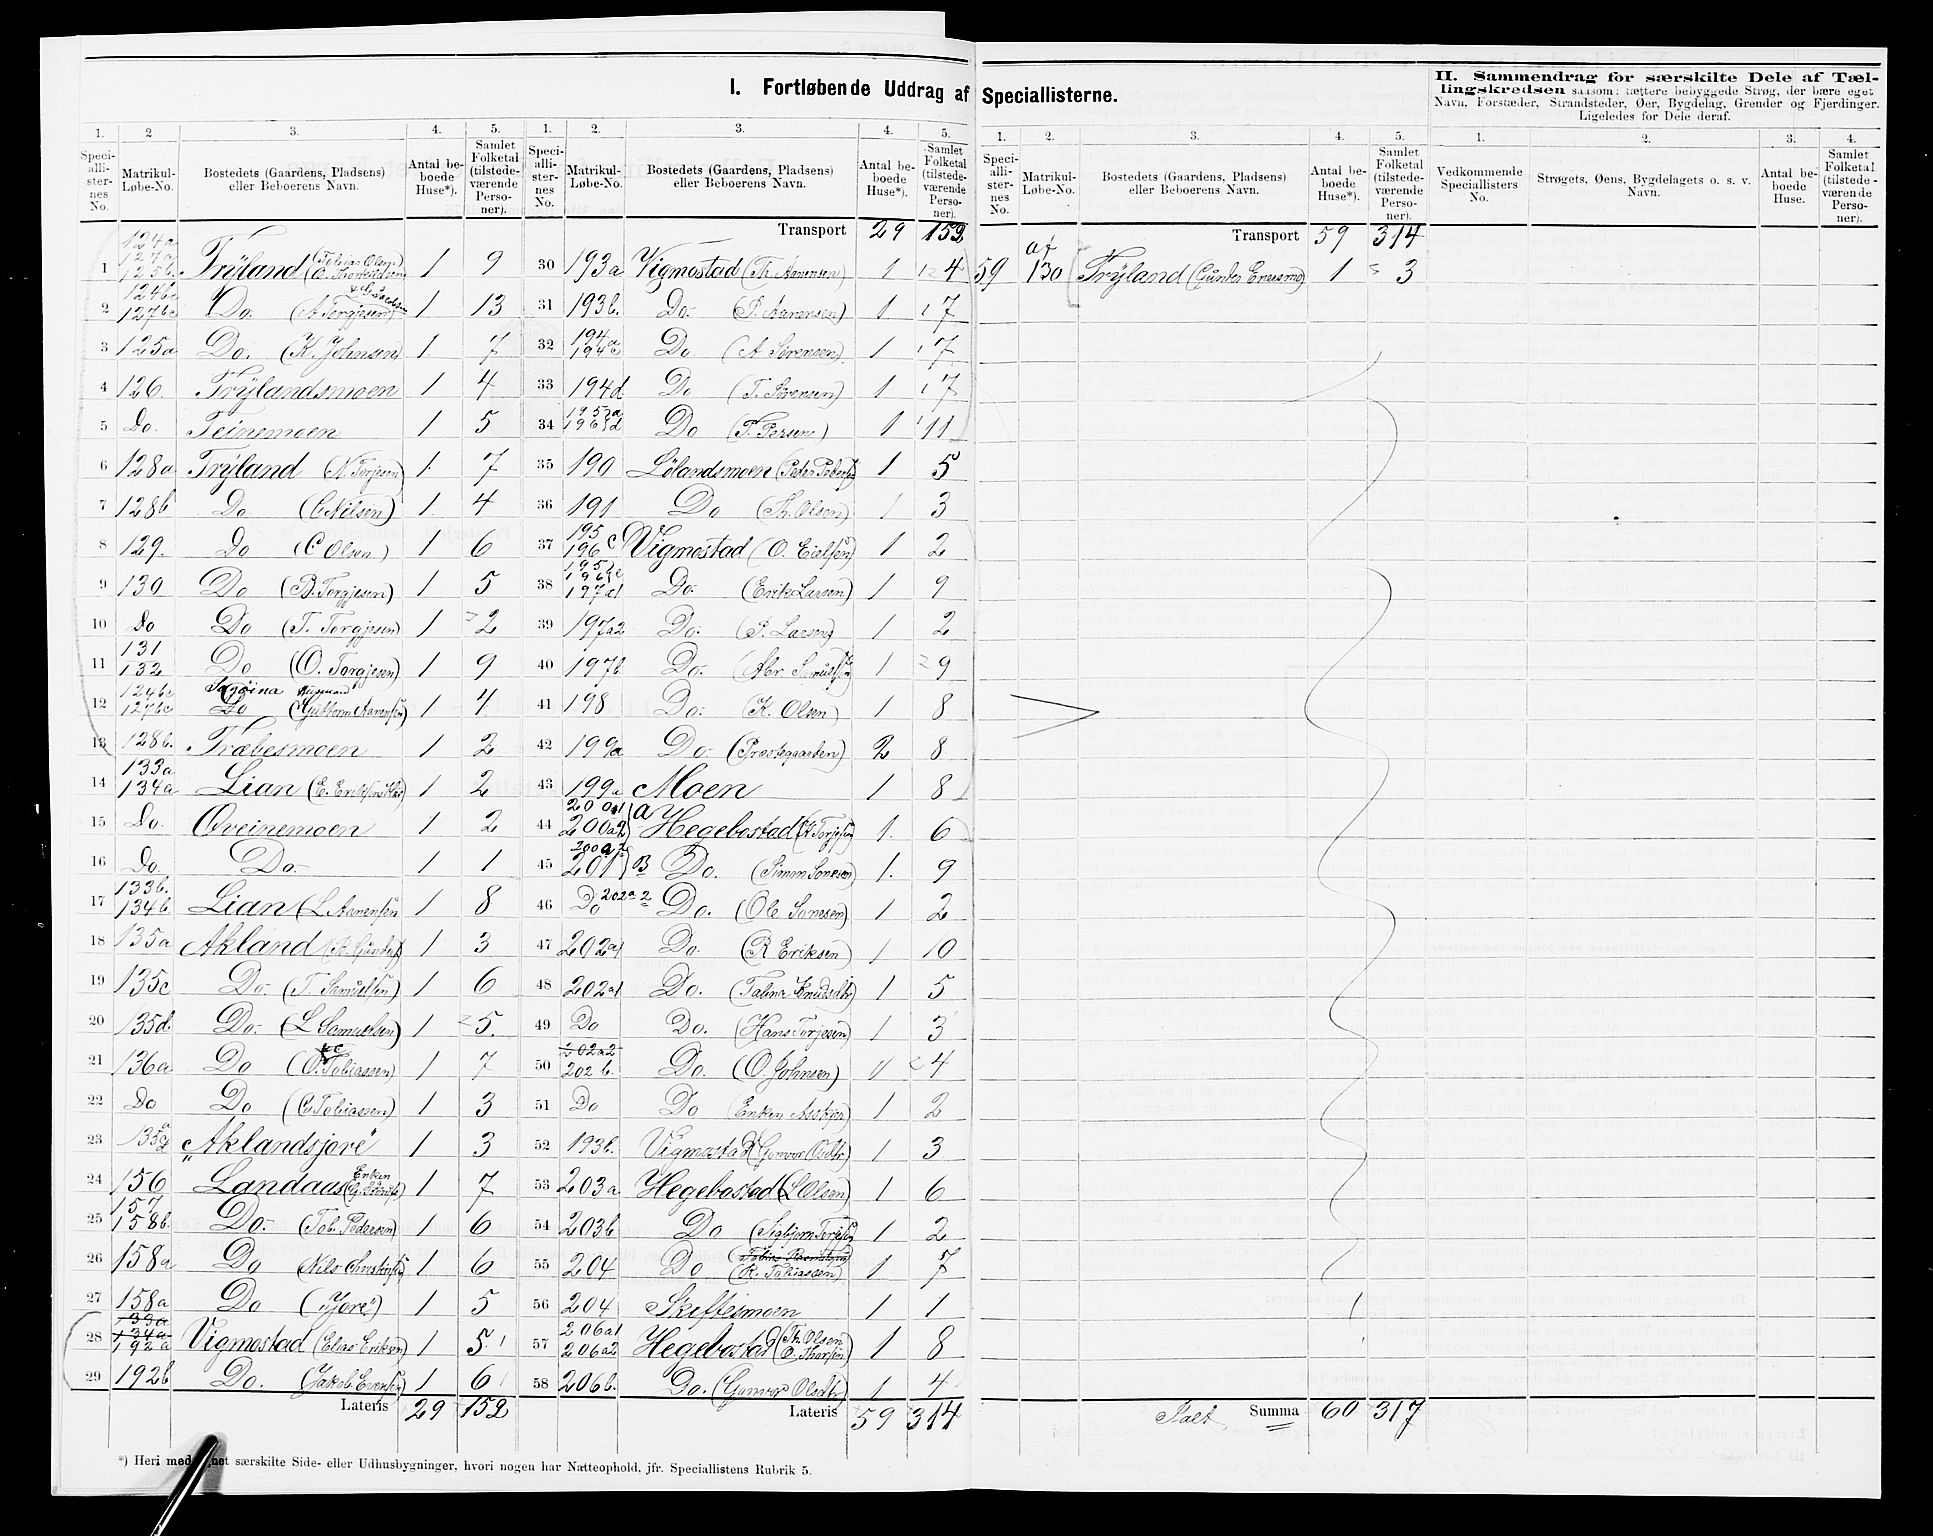 I. Fortløbende Uddrag af Speciallisterne.
II. Sammendrag for særskilte Dele af Tæl-
lingskredsen saasom: tættere bebyggede Strøg, der bære eget
Navn, Forstæder, Strandsteder, Øer, Bygdelag, Grender og Fjerdinger.
Ligeledes for Dele deraf.
1. 2. 3. 4. 5.
Speci-alli-ster-nes No. Matrikul-Løbe-No. Bostedets (Gaardens, Pladsens) eller Beboerens Navn. Antal be-boede Huse*). Samlet Folketal (tilstede-værende Perso-ner).
1 124a 127a 125b. Trÿland (Tobias Olsen 1 9
2 124bc 127bc Do. (A Torgjesen) 1 13
3 125a Do. (K. Johnsen) 1. 7
4 126. Trÿlandsmoen 1 4
5 Do. Teinemoen 1 5
6 128a Trÿland (N. Torjesen) 1. 7
7 128b Do (C Nilsen) 1. 4
8 129. Do (C Olsen) 1 6
9 130 Do (B. Torgjesen) 1 5
10 Do Do (T. Torgjesen) 1 2
11 131 132 Do (O. Torgjesen) 1 9
12 124bc 127bc Do (Guttorm Aanensen) 1 4
13 128b. Træbesmoen 1 2
14 133a 134a Lian 1 2
15 Do. Qveinemoen 1 2
16 Do. Do. 1 1
17 133b. 134b. Lian (L Aanensen 1 8
18 135a Akland 1 3
19 135c Do. (T. Samuelsen) 1 6
20 135d. Do. (L Samuelsen) 1 5.
21 136a Do (O. Tobiassen) 1 7
22 Do Do (C Tobiassen) 1 3
23 "Aklandsjore" 1 3
24 156 Landaas (Enken 1 7
25 157 158b. Do. (Tob. Pedersen) 1 6
26 158a Do (Nils Christensen 1 6
27 158a Do ("Jore") 1 5
28 133a 134a 192a Vigmostad (Elias Eriksen) 1 5
29 192b Do. (Jakob Evensen) 1 6
Lateris 29 152
1. 2. 3. 4. 5.
Speci-alli-ster-nes No. Matrikul-Løbe-No. Bostedets (Gaardens, Pladsens) eller Beboerens Navn. Antal be-boede Huse*). Samlet Folketal (tilstede-værende Perso-ner).
Transport 29 152
30 193a Vigmostad (Th. Aanensen) 1 4
31 193b. Do. (P. Aanensen) 1. 7
32 194a 194c Do (A Sørensen) 1 7
33 194d Do (T. Sørensen) 1 7
34 195a 196d Do (P. Persen) 1 11
35 190 Lölandsmoen (Peder Pedersen 1 5
36 191 Do (Th. Olsen) 1 3
37 195 196 c Vigmostad (O. Eielsen) 1 2
38 195 196 197a1 Do. (Erik Larsen) 1 9
39 197a2 Do. (P. Larsen) 1 2
40 197b. Do. (Abr. Samuelsen 1 9
41 198 Do. (K. Olsen) 1 8
42 199a Do. (Præstegaarden) 2 8
43 199a Moen 1 8
44 200a1 200a2 a Hegebostad (K Torjesen 1. 6
45 200a2 201 B Do. (Simon Sonesen) 1. 9
46 Do 202a2 Do. (Ole Sonesen) 1 2
47 202a1 Do. (R Eriksen) 1 10
48 202a1 Do. (Talina Knudsdtr) 1 5
49 Do Do. (Hans Torjesen) 1 3
50 202a2 202 b. Do. (O. Johnsen) 1 4
51 Do Do (Enken 1 2
52 193b. Vigmostad (Gunvor 1 3
53 203a Hegebostad (L Olsen) 1 6
54 203b Do (Sigbjørn Torjesen 1 2
55 204 Do (K. Tobiassen) 1 7
56 204 Skiftesmoen 1 1
57 206a1 206a2 Hegebostad (Th. Olsen 1 8
58 206b. Do. (Gunvor Olsdtr) 1 4
Lateris 59 314
*) Heri med særskilte Side- eller Udhusbygninger, hvori nogen har Natteophold, jfr. Speciallistens Rubrik 5.
1. 2. 3. 4. 5.
Speci-alli-ster-nes No. Matrikul-Løbe-No. Bostedets (Gaardens, Pladsens) eller Beboerens Navn. Antal be-boede Huse*). Samlet Folketal (tilstede-værende Perso-ner).
Transport 59 314
59 af 130 Trÿland 1 3
Ialt Summa 60 317
1. 2. 3. 4.
Vedkommende Speciallisters No. Strøgets, Øens, Bygdelagets o. s. v. Navn. Antal be-boede Huse. Samlet Folketal (tilstede-værende Perso-ner).